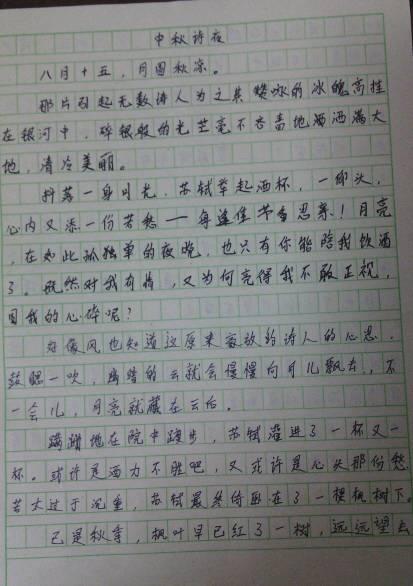 中秋诗夜
八月十五，月圆秋凉。
那片引起无数诗人为之共赞咏的冰魄高挂
在银河中，碎银般的光芒毫不吝啬地洒满大
地，清冷美丽。
抖落一身月光，苏轼举起酒杯，一仰头，
心内又添一份苦愁——每逢佳节多思亲！月亮
，在如此孤独单的夜晚，也只有你能陪我饮酒
了。既然对我有情，又为何亮得我不敢正视，
因我的心碎呢？
好像风也知道这原来豪放的诗人的心思，
鼓腮一吹，的云就会慢慢向月儿飘去，不
一会儿，月亮就藏在云后。
蹒跚地在院中踱步，苏轼灌进了一杯又一
杯。或许是酒力不胜吧，又或许是心头那份愁
苦太过于沉重，苏轼最终倚卧在了一棵枫树下。
已是秋季，枫叶早已红了一树，远远望去